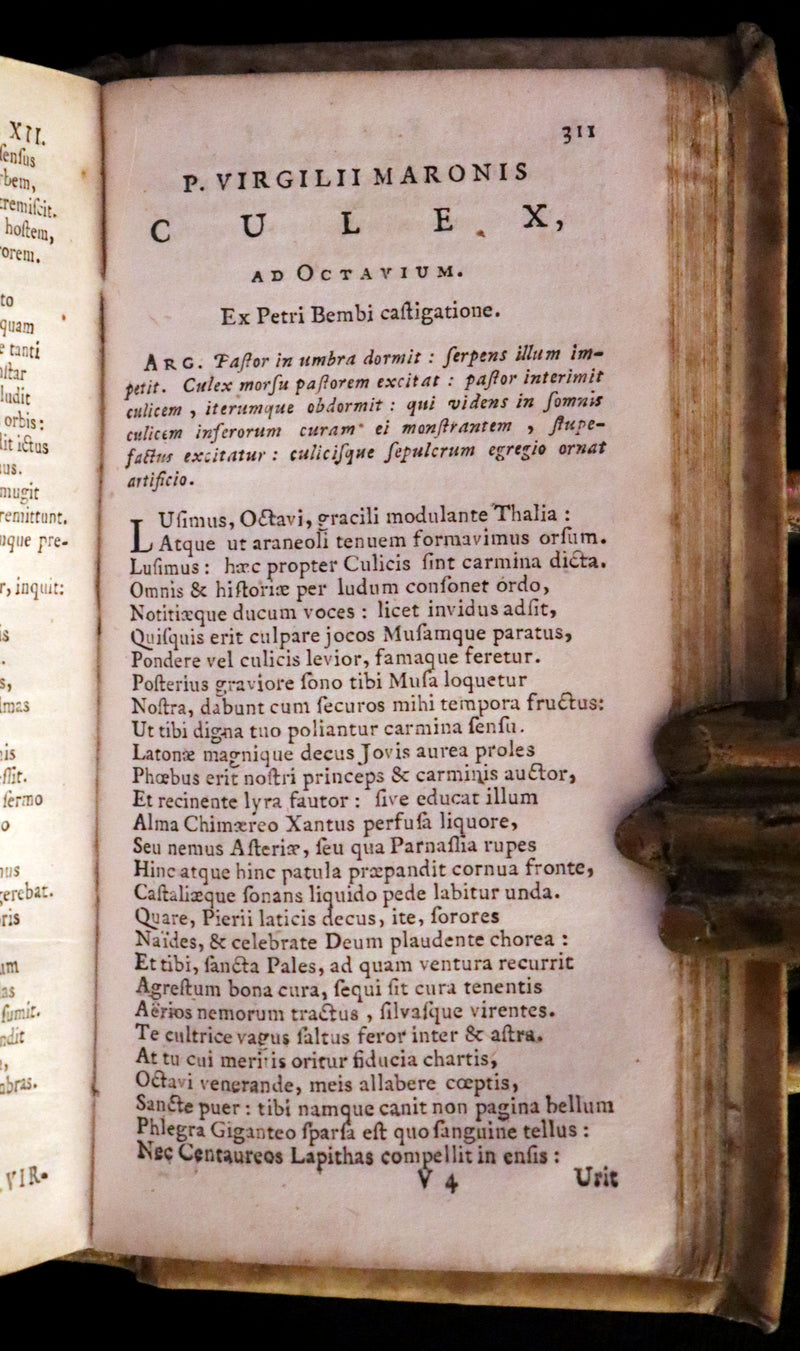 XII.
ſenſus
rbem,
tremiſcit.
hoſtem,
orem.
to
quam
tanti
ludit
orbis:
lit ictus
ius.
mugit
remittunt,
ſque pre-
r, inquit:
is
ſermo
gerebat.
ris
ſumit.
VIR-
311
P. VIRGILII MARONIS
CULEX,
AD OCTAVIUM.
Ex Petri Bembi caſtigatione.
ARG. Paſtor in umbra dormit : ſerpens illum im-
petit. Culex morſu paſtorem excitat : paſtor interimit
culicem , iterumque obdormit : qui videns in ſomnis
culicem inferorum curam ei monſtrantem , ſtupe-
factus excitatur : culiciſque ſepulcrum egregio ornat
artificio.
LUſimus, Octavi, gracili modulante Thalia :
Atque ut araneoli tenuem formavimus orſum.
Luſimus : hæc propter Culicis ſint carmina dicta.
Omnis & hiſtoriæ per ludum conſonet ordo,
Notitiæque ducum voces : licet invidus adſit,
Quiſquis erit culpare jocos Muſamque paratus,
Pondere vel culicis levior, famaque feretur.
Poſterius graviore ſono tibi Muſa loquetur
Noſtra, dabunt cum ſecuros mihi tempora fructus:
Ut tibi digna tuo poliantur carmina ſenſu.
Latonæ magnique decus Jovis aurea proles
Phœbus erit noſtri princeps & carminis auctor,
Et recinente lyra fautor : ſive educat illum
Alma Chimæreo Xantus perfuſa liquore,
Seu nemus Aſteriæ, ſeu qua Parnaſſia rupes
Hinc atque hinc patula præpandit cornua fronte,
Caſtaliæque ſonans liquido pede labitur unda.
Quare, Pierii laticis decus, ite, ſorores
Naïdes, & celebrate Deum plaudente chorea :
Et tibi, ſancta Pales, ad quam ventura recurrit
Agreſtum bona cura, ſequi ſit cura tenentis
Aërios nemorum tractus , ſilvaſque virentes.
Te cultrice vagus ſaltus feror inter & aſtra.
At tu cui meritis oritur fiducia chartis,
Octavi venerande, meis allabere cœptis,
Sancte puer : tibi namque canit non pagina bellum
Phlegra Giganteo ſparſa eſt quo ſanguine tellus :
Nec Centaureos Lapithas compellit in enſis :
V 4 Urit